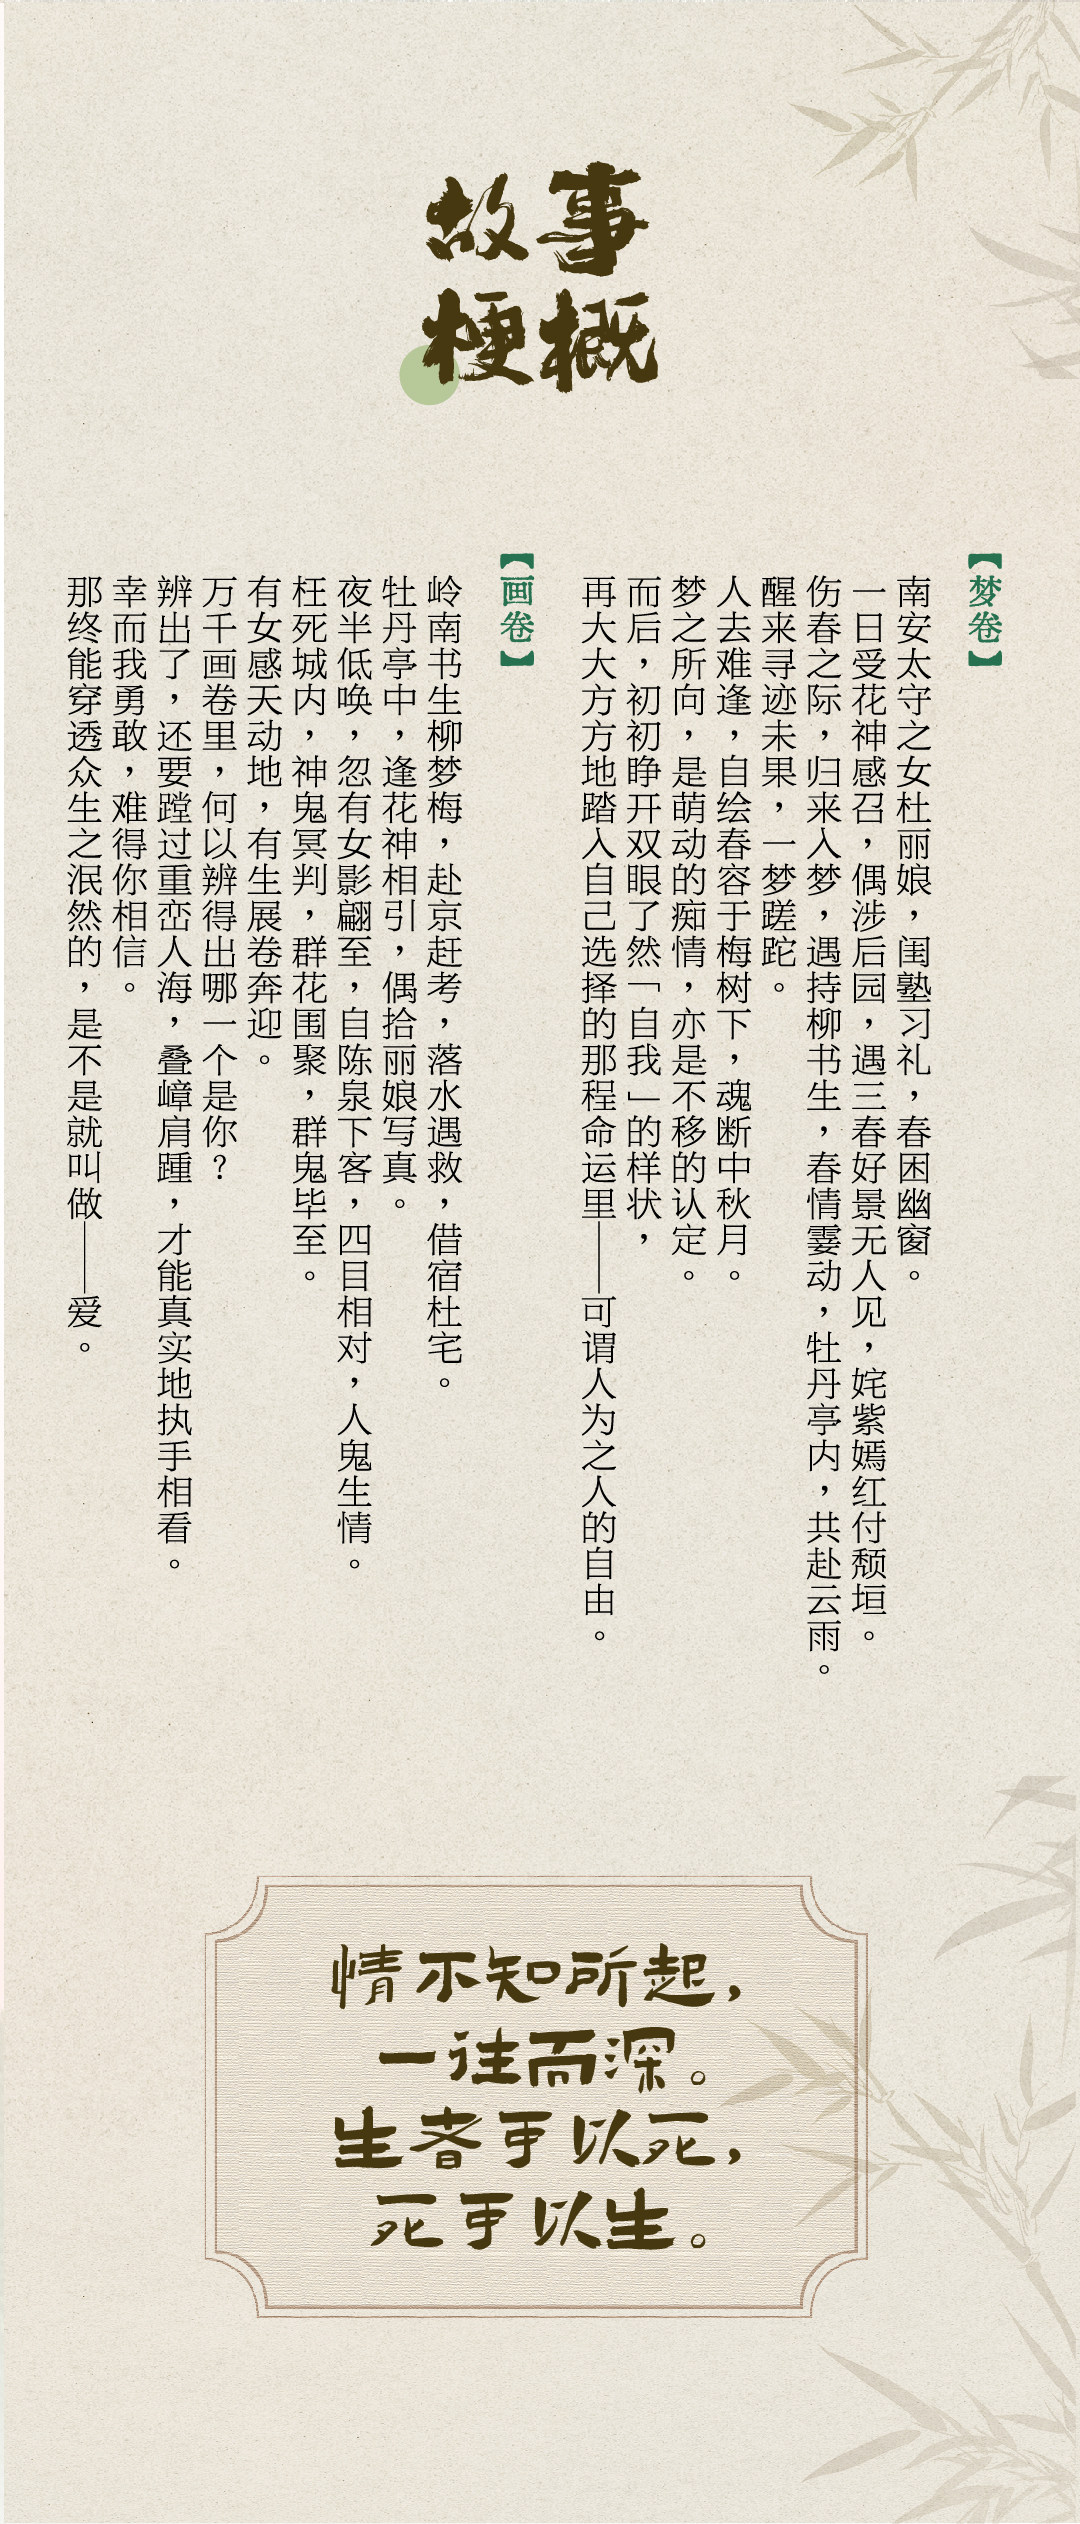 故事
梗概
【梦卷】
南安太守之女杜丽娘，闺塾习礼，春困幽窗。
一日受花神感召，偶涉后园，遇三春好景无人见，姹紫嫣红付颓垣。
伤春之际，归来入梦，遇持柳书生，春情霎动，牡丹亭内，共赴云雨。
醒来寻迹未果，一梦蹉跎。
人去难逢，自绘春容于梅树下，魂断中秋月。
梦之所向，是萌动的痴情，亦是不移的认定。
而后，初初睁开双眼了然「自我」的样状，
再大大方方地踏入自己选择的那程命运里——可谓人为之人的自由。
【画卷】
岭南书生柳梦梅，赴京赶考，落水遇救，借宿杜宅。
牡丹亭中，逢花神相引，偶拾丽娘写真。
夜半低唤，忽有女影翩至，自陈泉下客，四目相对，人鬼生情。
枉死城内，神鬼冥判，群花围聚，群鬼毕至。
有女感天动地，有生展卷奔迎。
万千画卷里，何以辨得出哪一个是你？
辨出了，还要蹚过重峦人海，叠嶂肩踵，才能真实地执手相看。
幸而我勇敢，难得你相信。
那终能穿透众生之泯然的，是不是就叫做——爱。
情不知所起，
一往而深。
生者可以死，
死可以生。